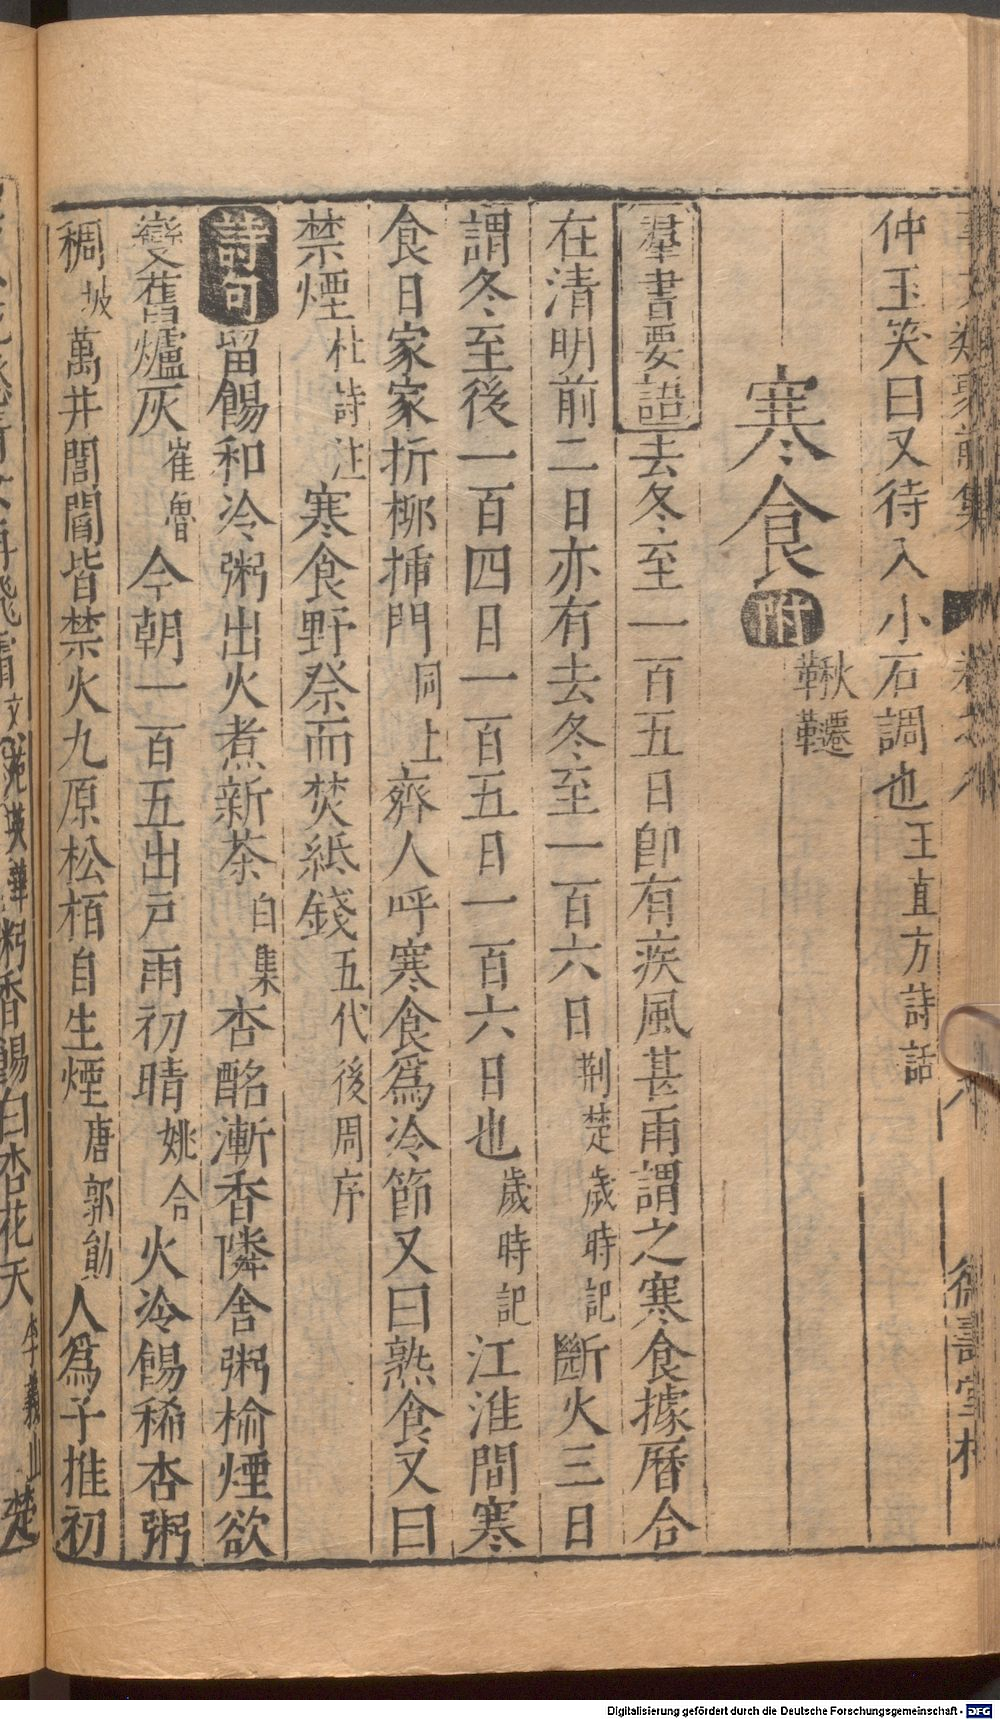 仲玉笑曰又待入小石調也王直方詩話
寒食附鞦韆
羣書要語去冬至一百五日即有疾風甚雨謂之寒食據曆合
在清明前二日亦有去冬至一百六日荆楚歲時記斷火三日
謂冬至後一百四日一百五日一百六日也歲時記江淮間寒
食日家家折桞揷門同上齊人呼寒食爲冷節又曰熟食又曰
禁煙杜詩注寒食野祭而焚紙錢五代後周序
詩句留餳和冷粥出火煮新茶白集杏酩漸香隣舍粥榆煙欲
變舊爐灰崔魯今朝一百五出戸雨初晴姚合火冷餳稀杏粥
稠坡萬井閭閻皆禁火九原松栢自生煙唐郭鄖人爲子推初
粥香餳白杏花天李義山楚
Digitalisierung gefördert durch die Deutsche Forschungsgemeinschaft - DFG